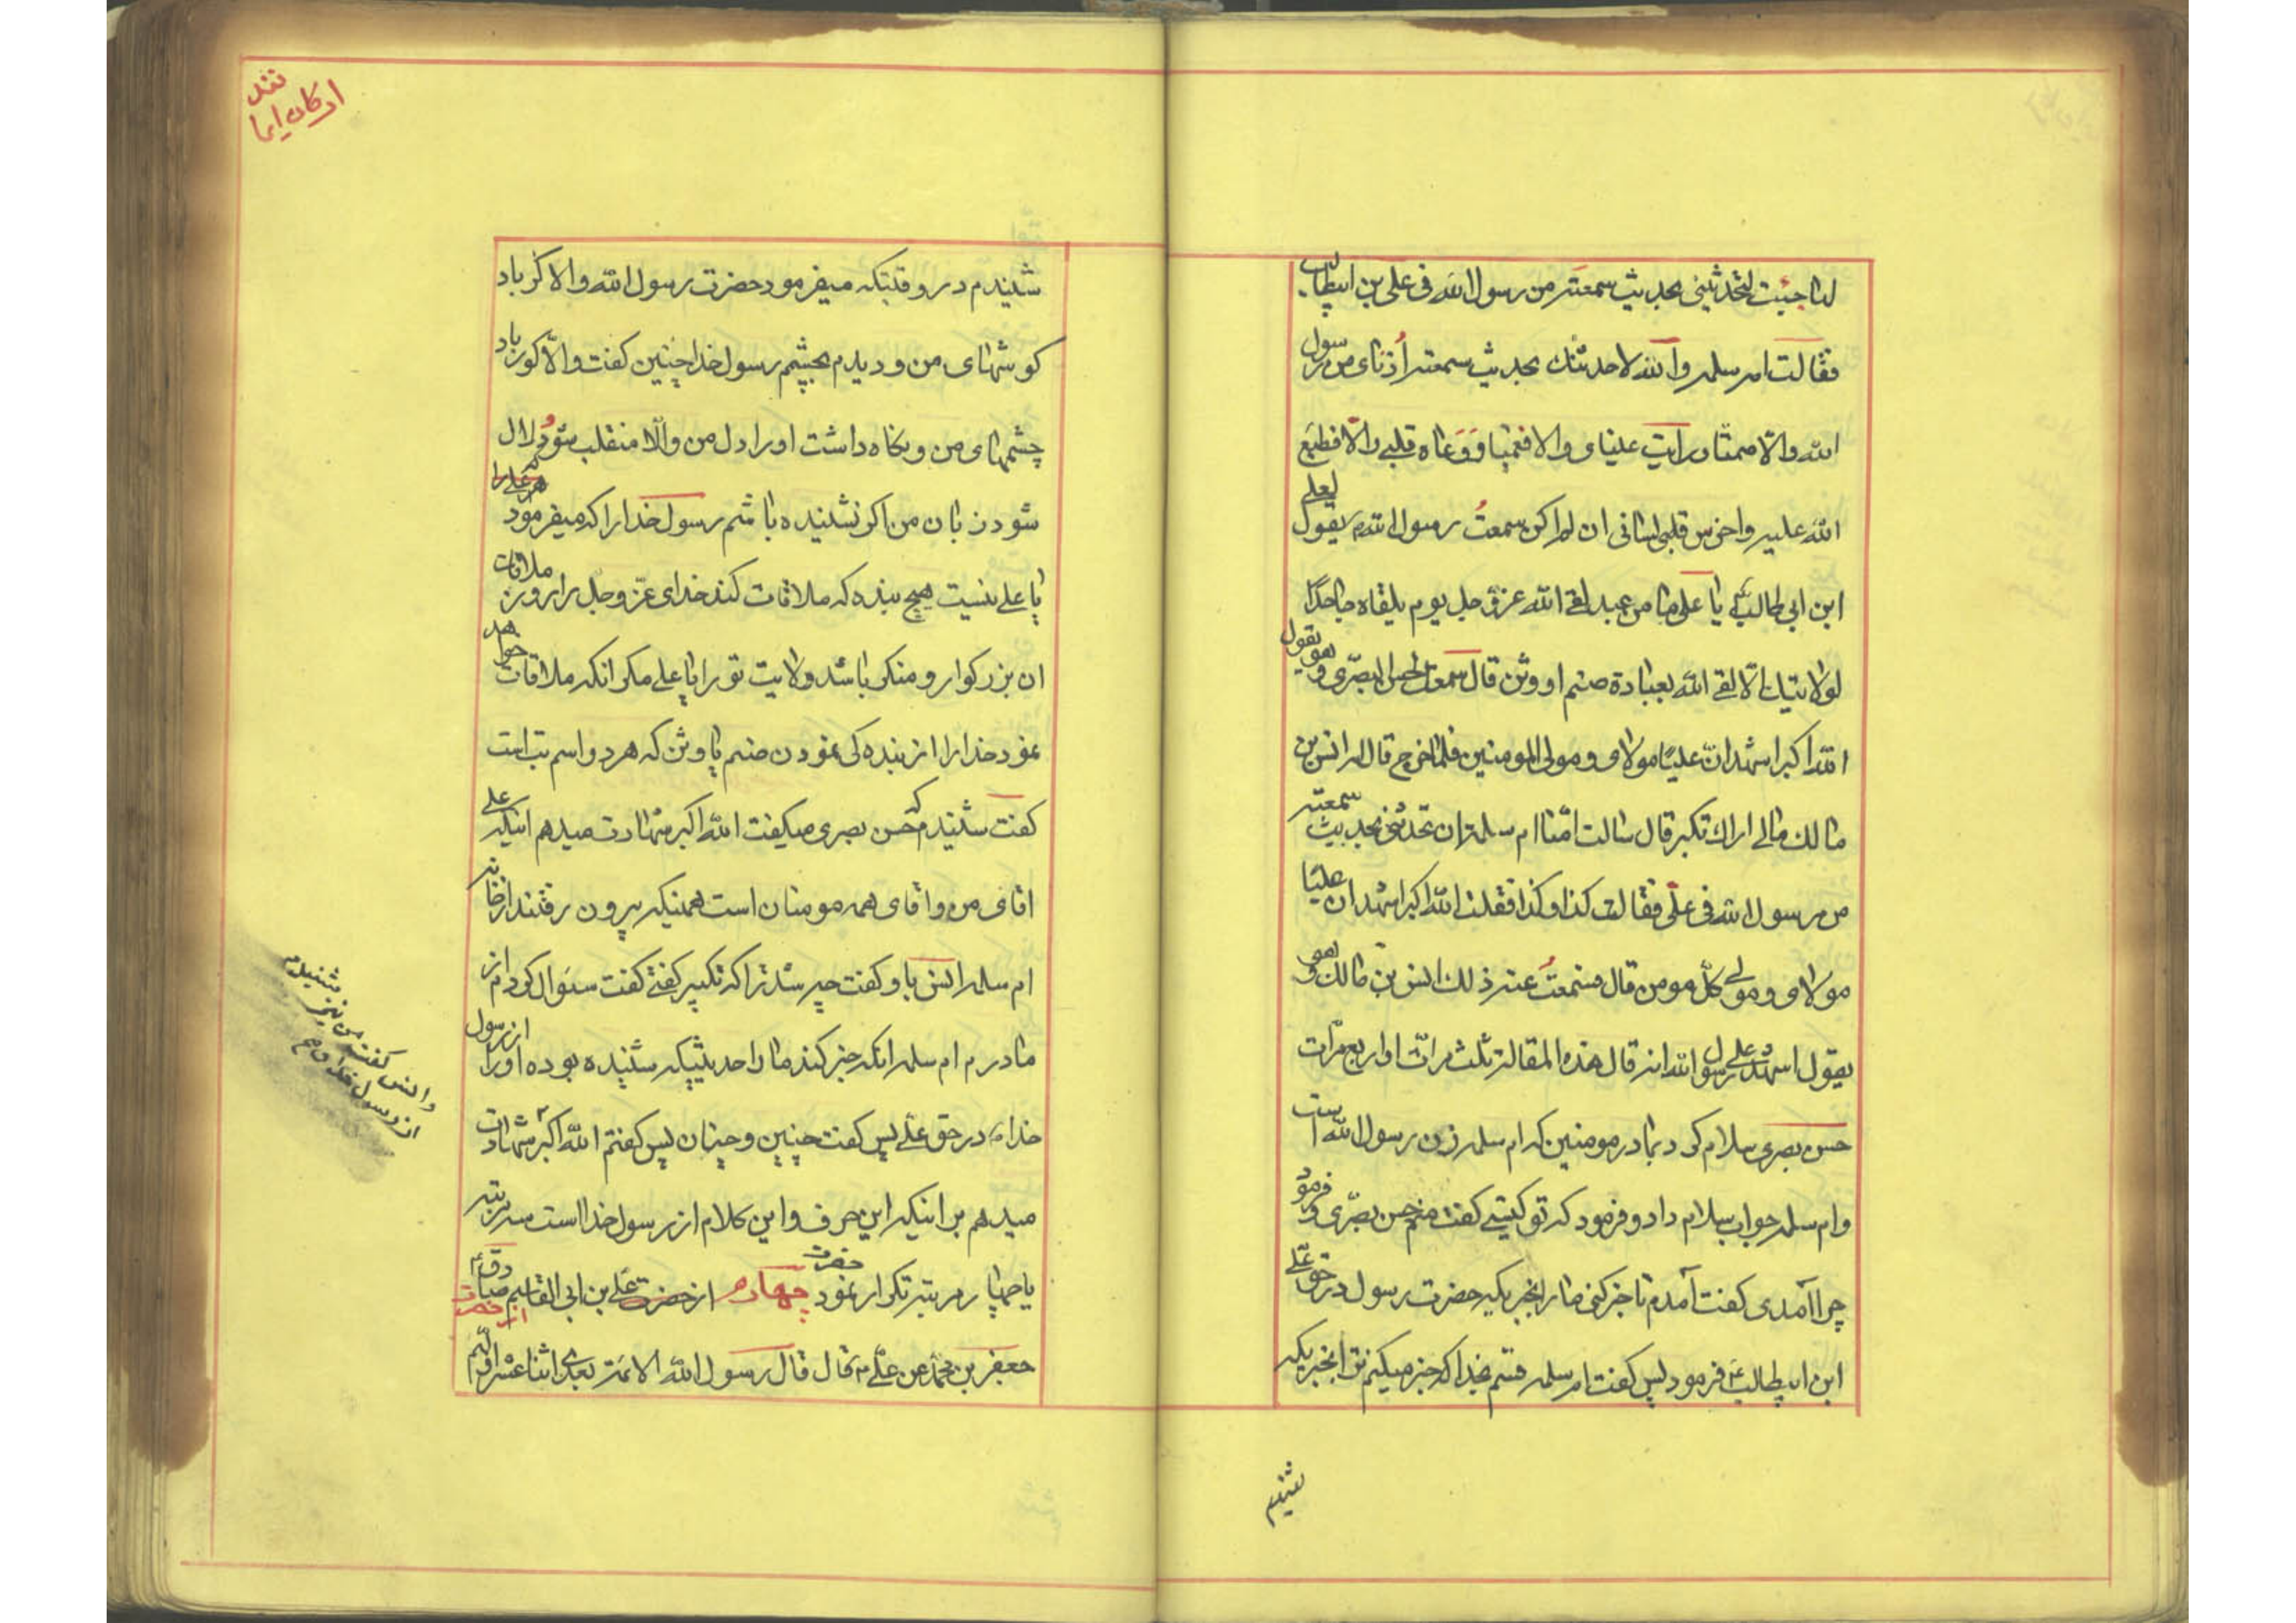 لما جئیت لتحدثینی بحدیث سمعته من رسول الله فی علی بن ابیطالب
فقالت ام سلمه والله لاحدثنک بحدیث سمعته اُذنای من رسول
الله والّا صمتا و رأیت عینای والا فعمیتا وَوَعاه قلبی والّا فطبع
الله علیه واخرس قلبی لسانی ان لم اکن سمعتُ رسول الله یقول لعلی
ابن ابی طالب یا علی ما من عبد لقی الله عزوجل یوم یلقاه جاحدًا
لولایتک الّا لقی الله بعبادة صنم او وثن قال سمعت الحسن البصری و هو یقول
الله اکبر اشهد انّ علیًا مولای و مولی المومنین فلما خرج قال له انس بن
مالک مالی اراک تکبر قال سالت امّنا ام سلمة ان تحدثنی بحدیث سمعته
من رسول الله فی علی فقالت کذا و کذا فقلت الله اکبر اشهد ان علیًا
مولای و مولی کلّ مومن قال فسمعتُ عند ذلک انس بن مالک و هو
یقول اشهد علی رسول الله انه قال هذه المقالة ثلث مرات او اربع مرّات
حسن بصری سلام کرد بمادر مومنین که ام سلمه زن رسول الله است
و ام سلمه جواب سلام داد و فرمود که تو کیستی کفت منم حسن بصری و فرمود
چرا آمدی کفت آمدم تا خبر کنی ما را بخبریکه حضرت رسول در حق علی
ابن ابیطالب فرمود پس کفت ام سلمه قسم بخدا که خبر میکنم ترا بخبریکه
شنیدم
نقد
ارکان ایما
شنیدم در وقتیکه میفرمود حضرت رسول الله والا کر باد
کوشهای من و دیدم بچشم رسول خدا چنین کفت والّا کور باد
چشمهای من و نکاه داشت او را دل من والّا منقلب شود و لال
شود زبان من اکر نشنیده باشم رسول خدا را که میفرمود علی را
یا علی نیست هیچ بنده که ملاقات کند خدای عزوجل را روز ملاقات
ان بزرکوار و منکر باشد ولایت تو را یا علی مکر انکه ملاقات خواهد
نمود خدا را از بنده کی نمودن صنم یا وثن که هر دو اسم بت است
کفت شنیدم که حسن بصری میکفت الله اکبر شهادت میدهم اینکه علی
اقای من و اقای همه مومنان است همینکه بیرون رفتند از خانه
ام سلمه انس باو کفت چه شد ترا که تکبیر کفتی کفت سئوال کردم از
مادرم ام سلمه انکه خبر کند ما را حدیثیکه شنیده بوده او را از رسول
خدا در حق علی پس کفت چنین و چنان پس کفتم الله اکبر شهادت
میدهم بر اینکه این حرف و این کلام از رسول خدا است سه مرتبه
یا چهار مرتبه تکرار نمود چهارم از حضرت علی بن ابی القاسم از حضرت صادق
جعفر بن محمد عن علی قال قال رسول الله الائمة بعدی اثنا عشر اولهم
و انس کفت من نیز شنیدم
از رسول خدا